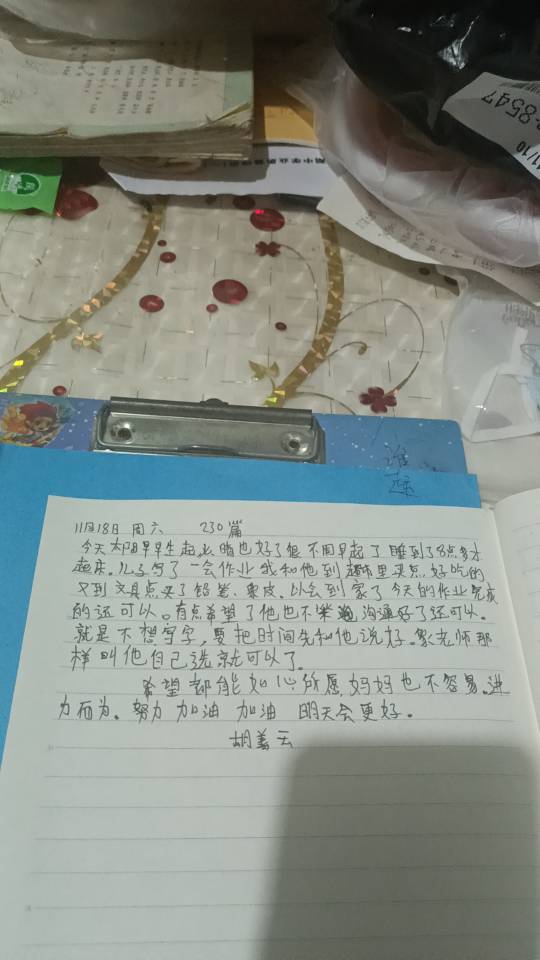 8547
11/10
11月18日 周六 230篇
今天 早早生起 也好了很 不用早起了 睡到了8点多才
起床。儿子写了一会作业 我和他到超市里买点 好吃的
又到文具点买了铅笔、象皮。以会到家了 今天的作业完成
的还可以。有点希望了他也不 沟通好了还可以。
就是不想写字,要把时间先和他说好。象老师那
样叫他自己选就可以了。
希望都能如心所愿,妈妈也不容易。进
力而为。努力 加油 加油 明天会更好。